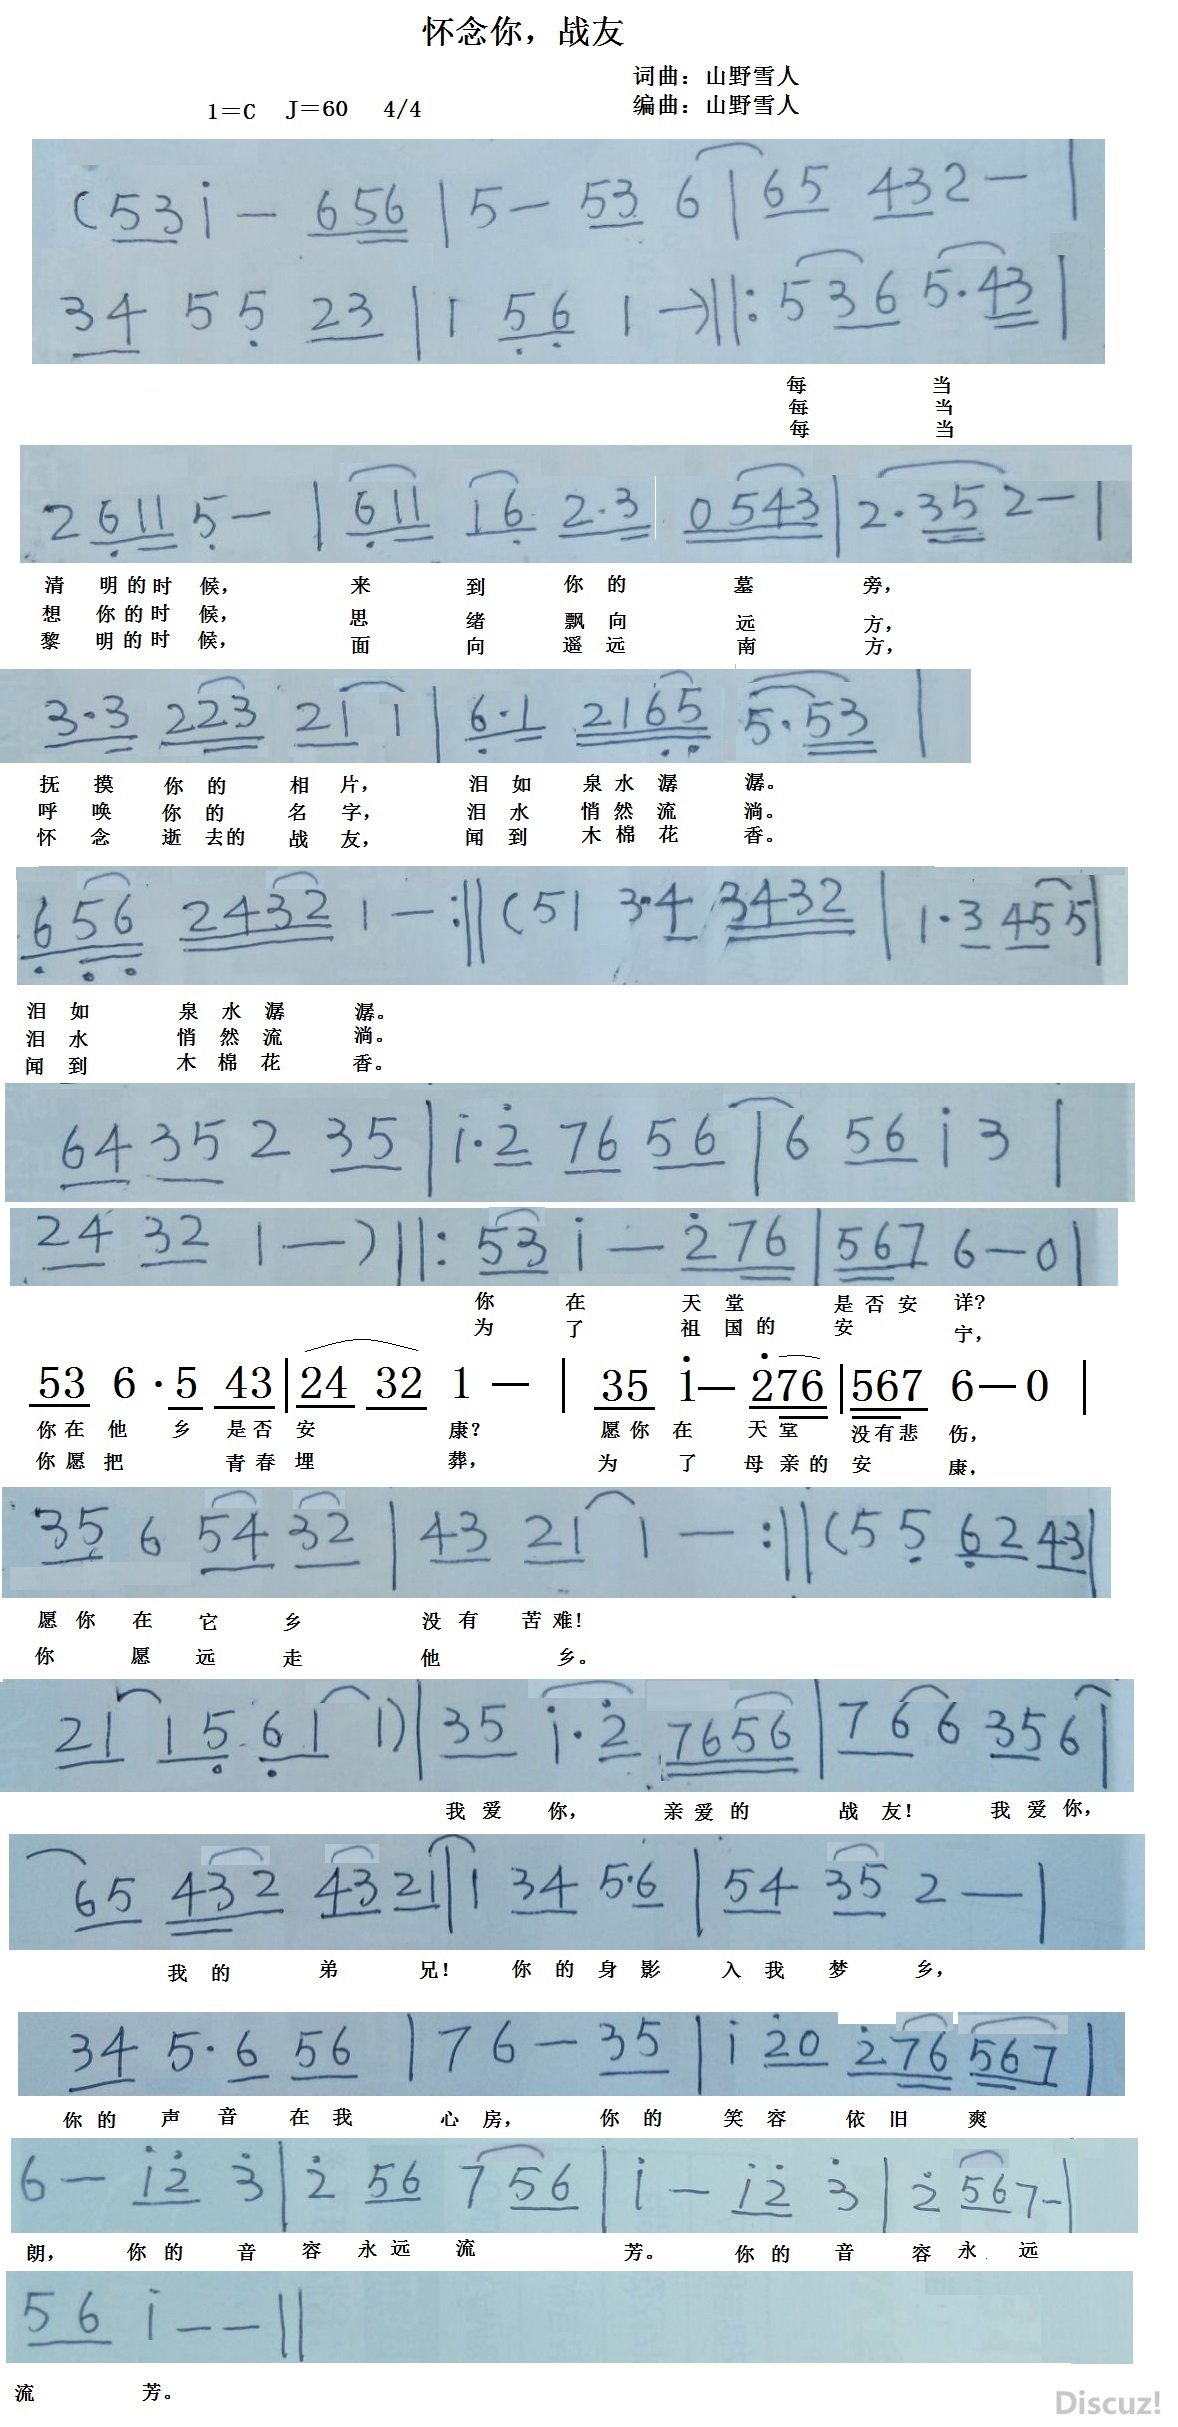 怀念你，战友
词曲：山野雪人
1＝C J＝60 4/4 编曲：山野雪人
(53i － 656 | 5 － 53 6 | 65 432 － |
34 55 23 | 1 56 1 －)||: 536 5·43 |
每 当
每 当
每 当
2 611 5 － | 611 16 2·3 0543 | 2·35 2 － |
清 明的时 候， 来 到 你 的 墓 旁，
想 你的时 候， 思 绪 飘 向 远 方，
黎 明的时 候， 面 向 遥 远 南 方，
3·3 223 21 1 | 6·1 2165 5·53 |
抚 摸 你 的 相 片， 泪 如 泉 水 潺 潺。
呼 唤 你 的 名 字， 泪 水 悄 然 流 淌。
怀 念 逝 去的 战 友， 闻 到 木 棉 花 香。
656 2432 1 － :|| (51 3·4 3432 | 1·3 45 5 |
泪 如 泉 水 潺 潺。
泪 水 悄 然 流 淌。
闻 到 木 棉 花 香。
64 35 2 35 | i·2 76 56 | 6 56 i 3 |
24 32 1 － )||: 53 i － 276 | 567 6 － 0 |
你 在 天 堂 是 否 安 详？
为 了 祖 国 的 安 宁，
53 6·5 43 | 24 32 1 － | 35 i － 276 | 567 6 － 0 |
你在 他 乡 是否 安 康？ 愿你 在 天 堂 没有悲 伤，
你愿 把 青春 埋 葬， 为 了 母 亲 的 安 康，
35 6 54 32 | 43 21 1 － :|| (5 5 62 43 |
愿 你 在 它 乡 没 有 苦 难！
你 愿 远 走 他 乡。
21 15 61 1) | 35 i·2 7656 | 76 6 35 6 |
我 爱 你， 亲 爱 的 战 友！ 我 爱 你，
65 432 43 21 | 1 34 5·6 | 54 35 2 － |
我 的 弟 兄！ 你 的 身 影 入 我 梦 乡，
34 5·6 56 | 7 6 － 35 | i 20 276 567 |
你 的 声 音 在 我 心 房， 你 的 笑 容 依 旧 爽
6 － i2 3 | 2 56 7 56 | i － i2 3 | 2 56 7 － |
朗， 你 的 音 容 永 远 流 芳。 你 的 音 容 永 远
56 i － － ||
流 芳。
Discuz!